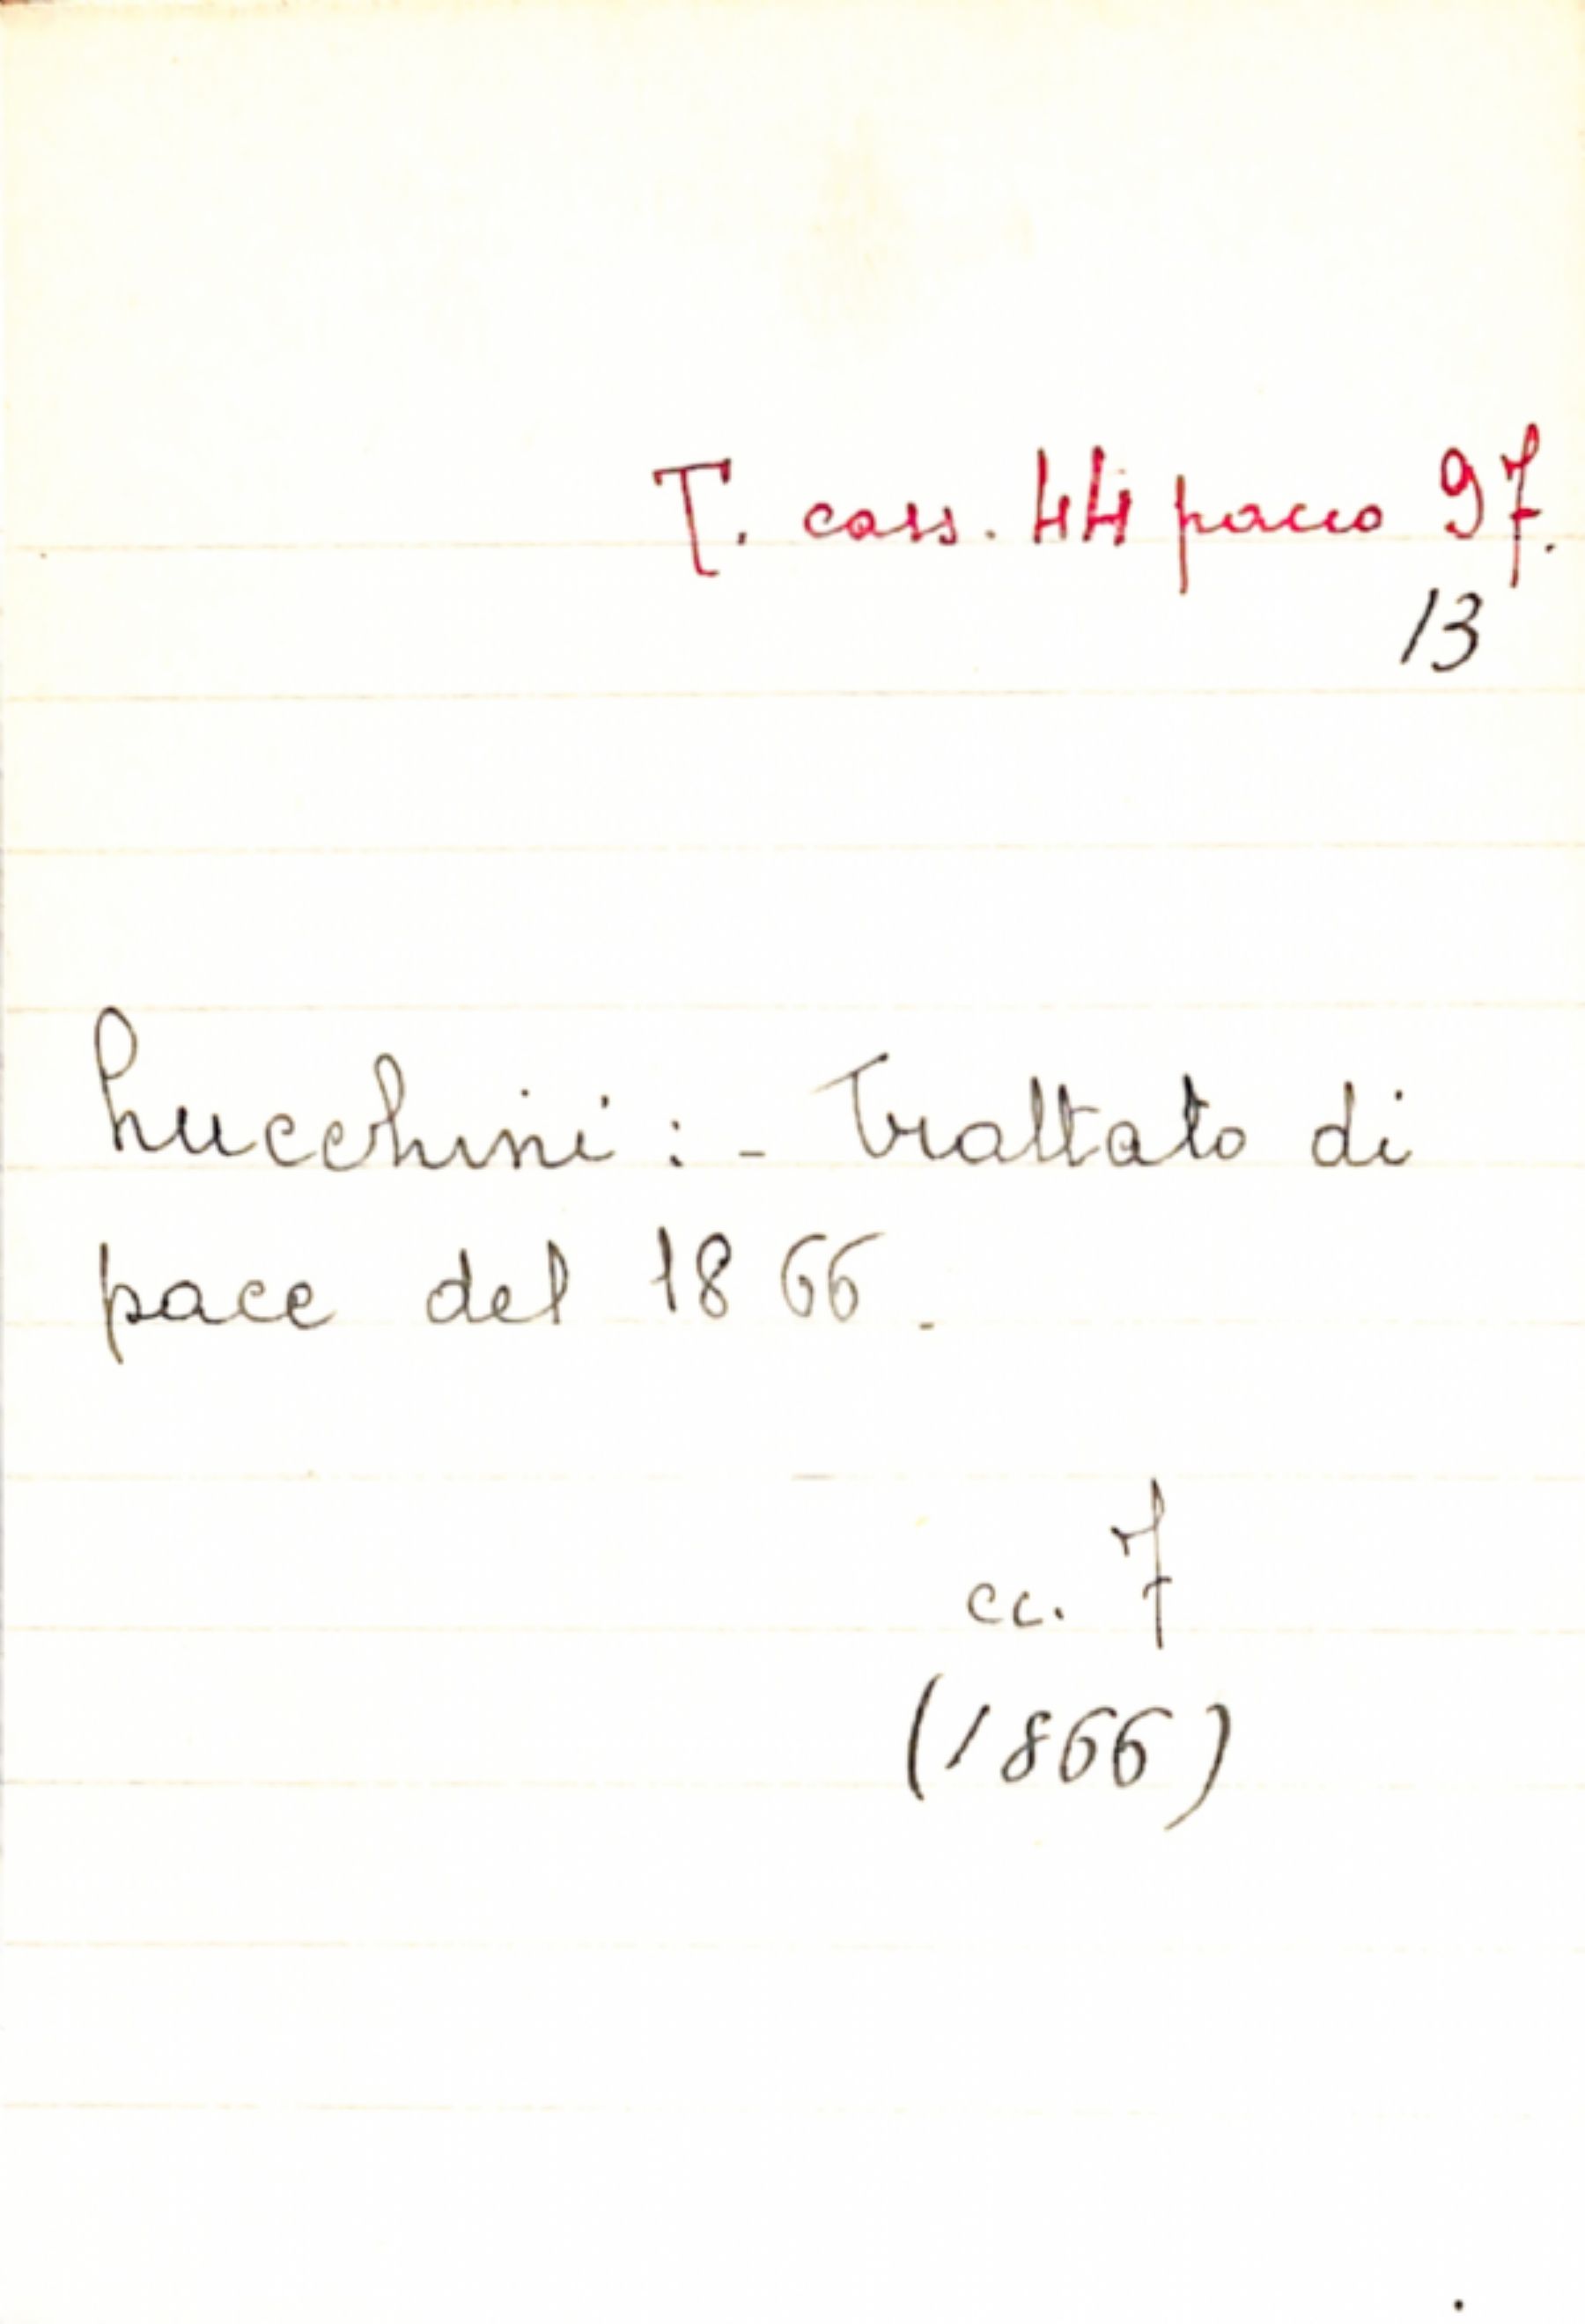 T. cass. 44 pacco 97.
13
Lucchini: - Trattato di
pace del 1866.
cc. 7
(1866)